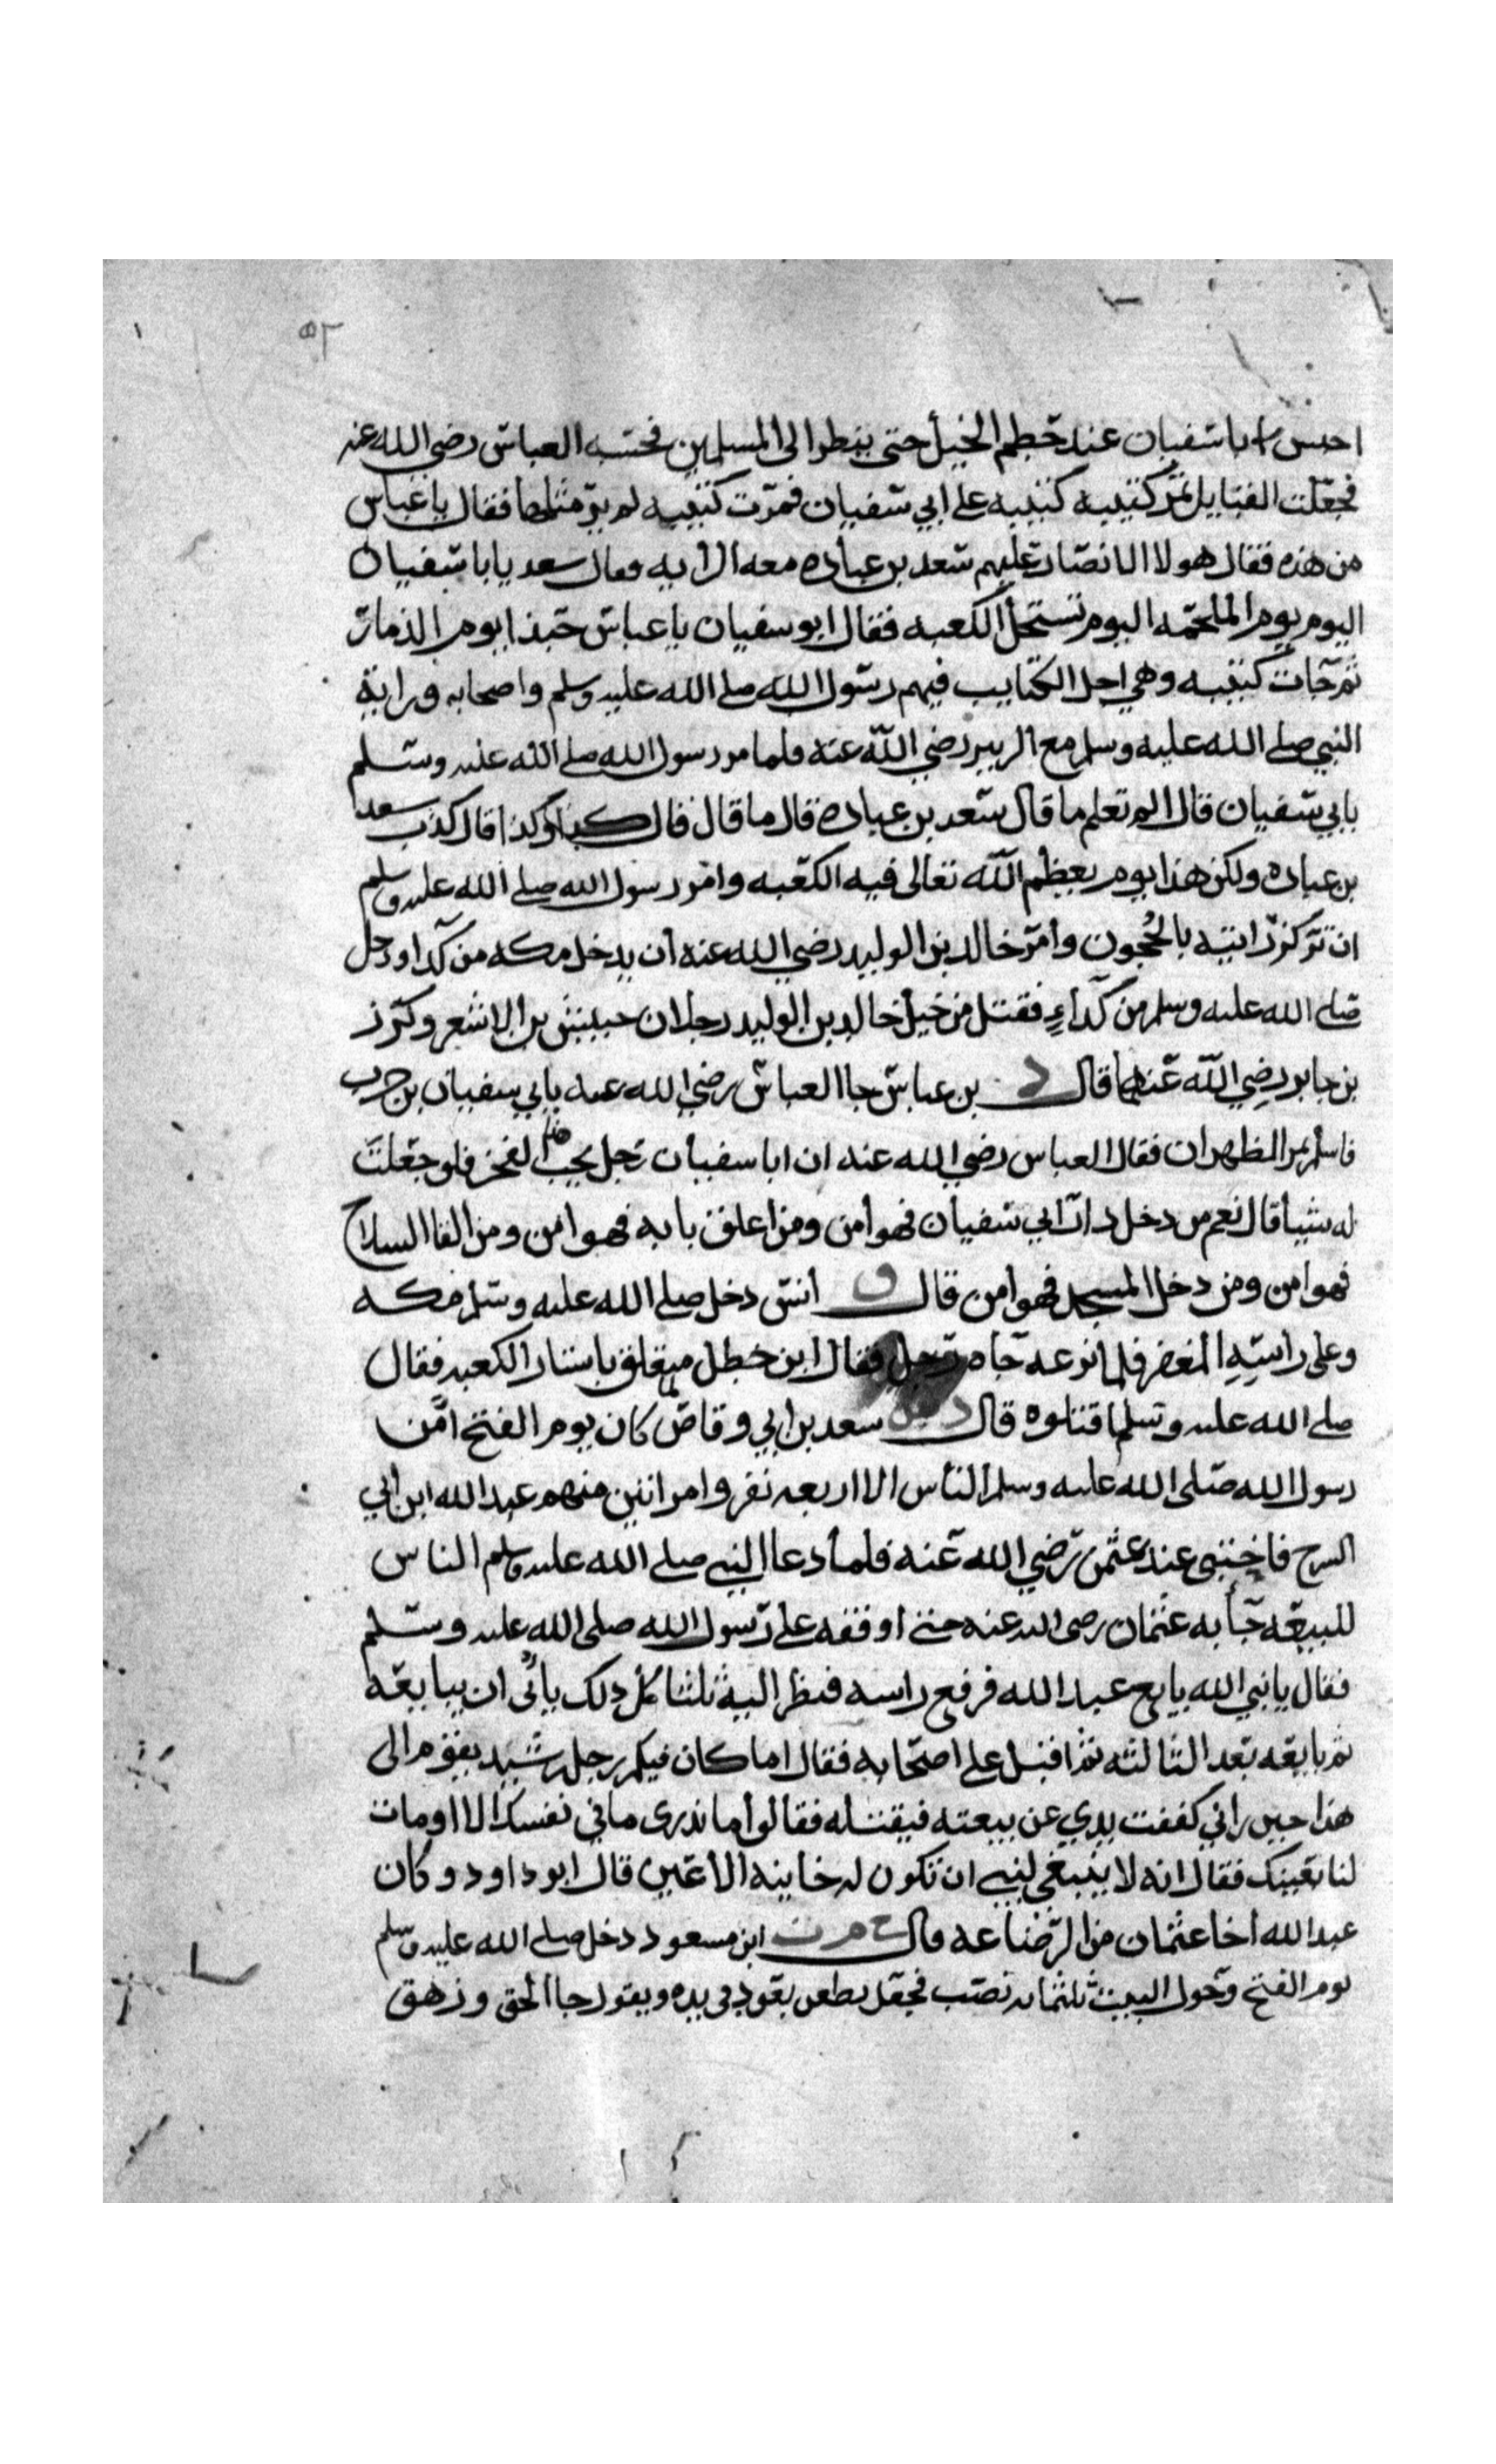 ٥٢
احبس ابا سفيان عند خطم الخيل حتى ينظر الى المسلمين فحبسه العباس رضي الله عنه
فجعلت القبايل تمر كتيبه كتيبه على ابي سفيان فمرت كتيبه لم ير مثلها فقال يا عباس
من هذه فقال هولا الانصار عليهم سعد بن عباده معه الرايه فقال سعد يابا سفيان
اليوم يوم الملحمه اليوم تستحل الكعبه فقال ابو سفيان يا عباس حبذا يوم الذمار
ثم جات كتيبه وهي اجل الكتايب فيهم رسول الله صلى الله عليه وسلم واصحابه وراية
النبي صلى الله عليه وسلم مع الزبير رضي الله عنه فلما مر رسول الله صلى الله عليه وسلم
بابي سفيان قال الم تعلم ما قال سعد بن عباده قال ما قال قال كذا وكذا قال كذب سعد
بن عباده ولكن هذا يوم يعظم الله تعالى فيه الكعبه وامر رسول الله صلى الله عليه وسلم
ان تركز رايته بالحجون وامر خالد بن الوليد رضي الله عنه ان يدخل مكه من كدا ودخل
صلى الله عليه وسلم من كداء فقتل من خيل خالد بن الوليد رجلان حبيش بن الاشعر وكرز
بن جابر رضي الله عنهما قال د بن عباس جا العباس رضي الله عنه بابي سفيان بن حرب
فاسلم بمر الظهران فقال العباس رضي الله عنه ان ابا سفيان رجل يحب هذا الفخر فلو جعلت
له شيا قال نعم من دخل دار ابي سفيان فهو امن ومن اغلق بابه فهو امن ومن القا السلاح
فهو امن ومن دخل المسجد فهو امن قال ق انس دخل صلى الله عليه وسلم مكه
وعلى راسه المغفر فلما نزعه جاه رجل فقال ابن خطل متعلق باستار الكعبه فقال
صلى الله عليه وسلم اقتلوه قال د س سعد بن ابي وقاص لما كان يوم الفتح امن
رسول الله صلى الله عليه وسلم الناس الا اربعه نفر وامراتين منهم عبد الله ابن ابي
السرح فاختبى عند عثمن رضي الله عنه فلما دعا النبي صلى الله عليه وسلم الناس
للبيعه جا به عثمان رضى الله عنه حتى اوقفه على رسول الله صلى الله عليه وسلم
فقال يا نبي الله بايع عبد الله فرفع راسه فنظر اليه ثلثا كل ذلك يابى ان يبايعه
ثم بايعه بعد الثالثه ثم اقبل على اصحابه فقال اما كان فيكم رجل رشيد يقوم الى
هذا حين راني كففت يدي عن بيعته فيقتله فقالوا ما ندرى ما في نفسك الا اومات
لنا بعينك فقال انه لا ينبغي لنبي ان تكون له خاينه الاعين قال ابو داود وكان
عبد الله اخا عثمان من الرضاعه قال خ م ت ابن مسعود دخل صلى الله عليه وسلم
يوم الفتح وحول البيت ثلثمايه نصب فجعل يطعن بعود في يده ويقول جا الحق وزهق